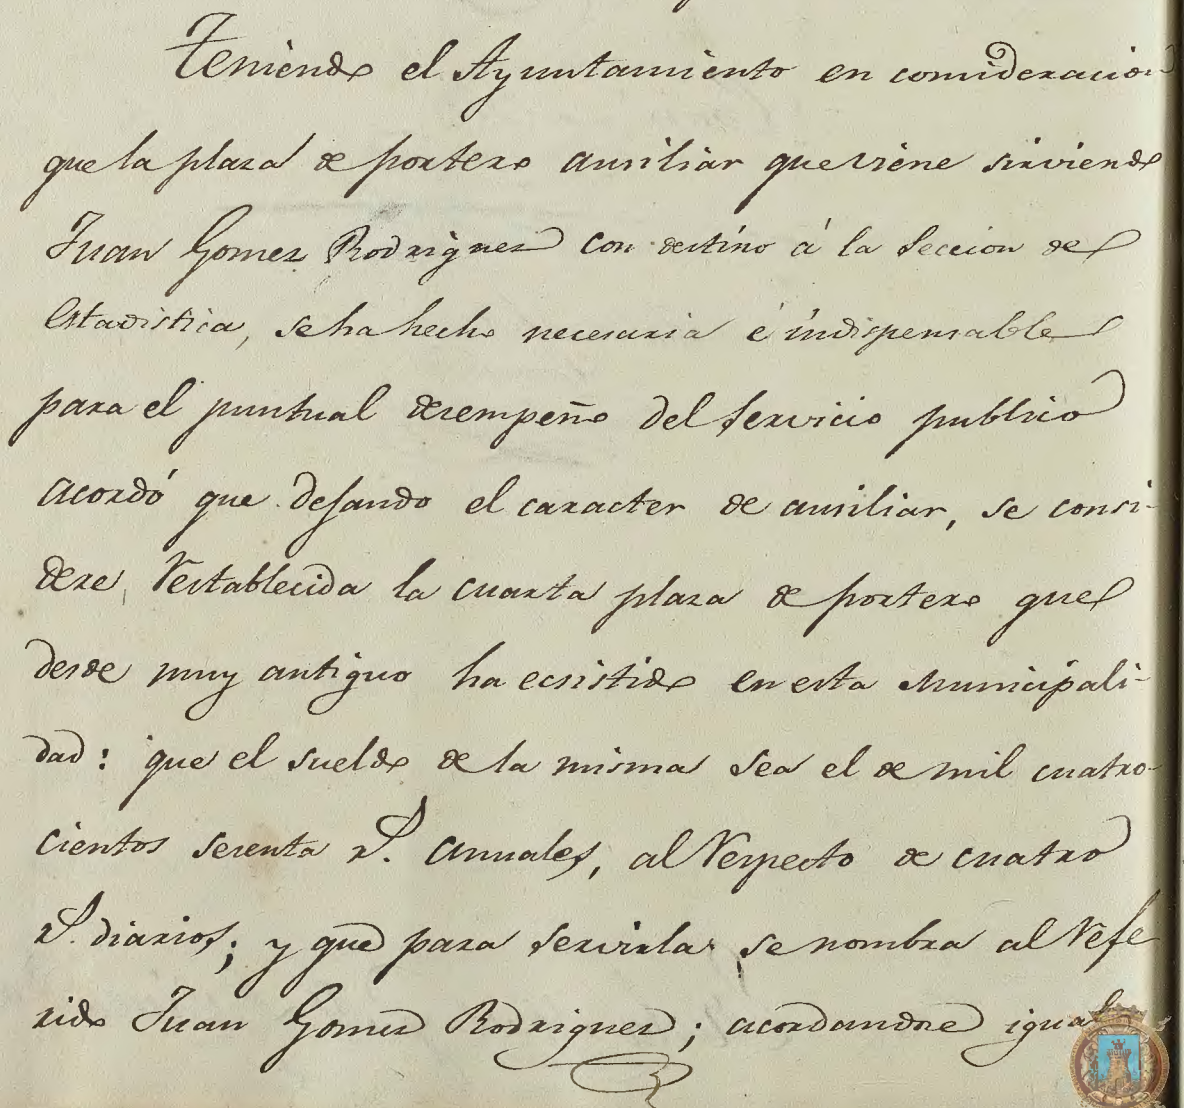 Teniendo el Ayuntamiento en consideracion
que la plaza de portero ausiliar que viene sirviendo
Juan Gomez Rodriguez con destino á la Seccion de
Estadistica, se ha hecho necesaria é indispensable
para el puntual desempeño del servicio publico
acordó que dejando el caracter de ausiliar, se consi-
dere restablecida la cuarta plaza de portero que
desde muy antiguo ha ecsistido en esta Municipali-
dad: que el sueldo de la misma sea el de mil cuatro-
cientos sesenta rs. anuales, al respecto de cuatro
rs. diarios; y que para servirla se nombra al refe
rido Juan Gomez Rodriguez; acordandose igual